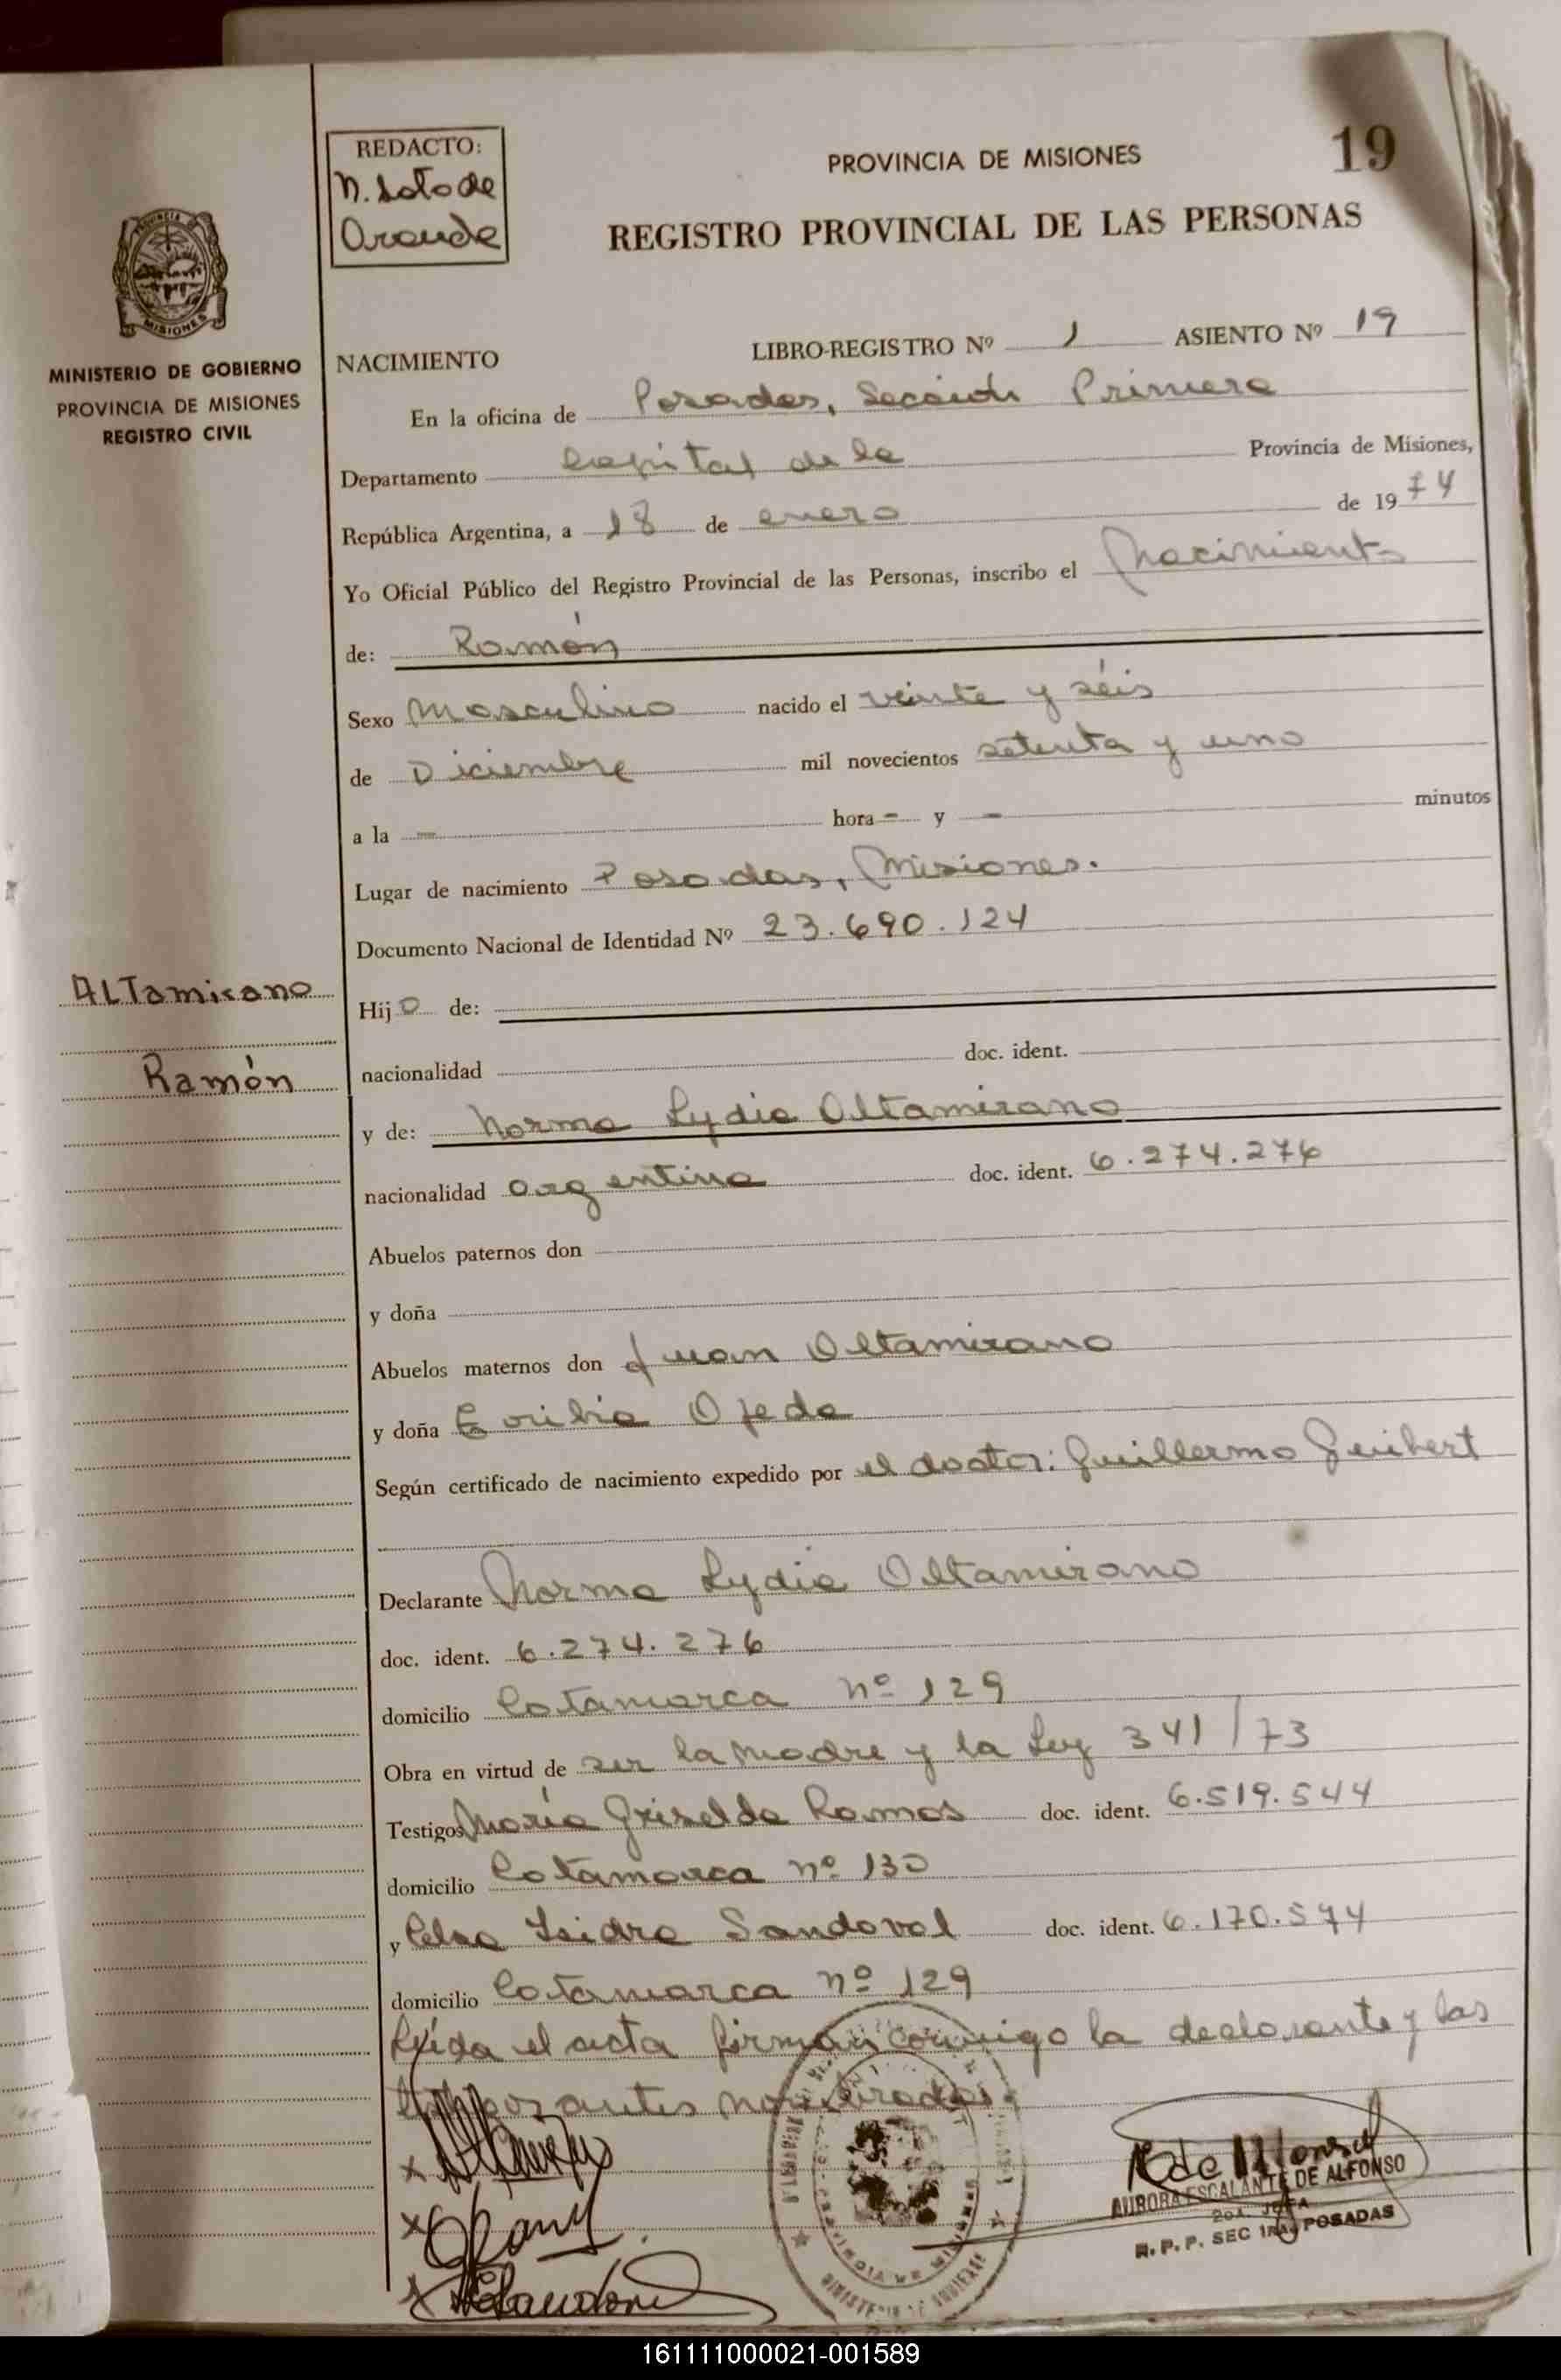 REDACTO:
N. Soto de
Aranda
PROVINCIA DE MISIONES
19
REGISTRO PROVINCIAL DE LAS PERSONAS
MISIONES
MINISTERIO DE GOBIERNO
PROVINCIA DE MISIONES
REGISTRO CIVIL
NACIMIENTO
LIBRO-REGISTRO Nº 1 ASIENTO Nº 19
En la oficina de Posadas, Sección Primera
Departamento Capital de la Provincia de Misiones,
República Argentina, a 18 de enero de 1974
Yo Oficial Público del Registro Provincial de las Personas, inscribo el Nacimiento
de: Ramón
Sexo Masculino nacido el veinte y séis
de Diciembre mil novecientos setenta y uno
a la - hora - y - minutos
Lugar de nacimiento Posadas, Misiones.
Documento Nacional de Identidad Nº 23.690.124
ALTamirano
Ramón
Hijo de:
nacionalidad doc. ident.
y de: Norma Lydia Altamirano
nacionalidad argentina doc. ident. 6.274.276
Abuelos paternos don
y doña
Abuelos maternos don Juan Altamirano
y doña Eoribia Ojeda
Según certificado de nacimiento expedido por el doctor: Guillermo Geibert
Declarante Norma Lydia Altamirano
doc. ident. 6.274.276
domicilio Catamarca nº 129
Obra en virtud de ser la madre y la Ley 341/73
Testigos María Griselda Ramos doc. ident. 6.519.544
domicilio Catamarca nº 130
y Celsa Isidra Sandoval doc. ident. 6.170.574
domicilio Catamarca nº 129
Leída el acta firman conmigo la declarante y las
nombradas.
AURORA ESCALANTE DE ALFONSO
2DA. JEFA
R. P. P. SEC 1RA. POSADAS
161111000021-001589